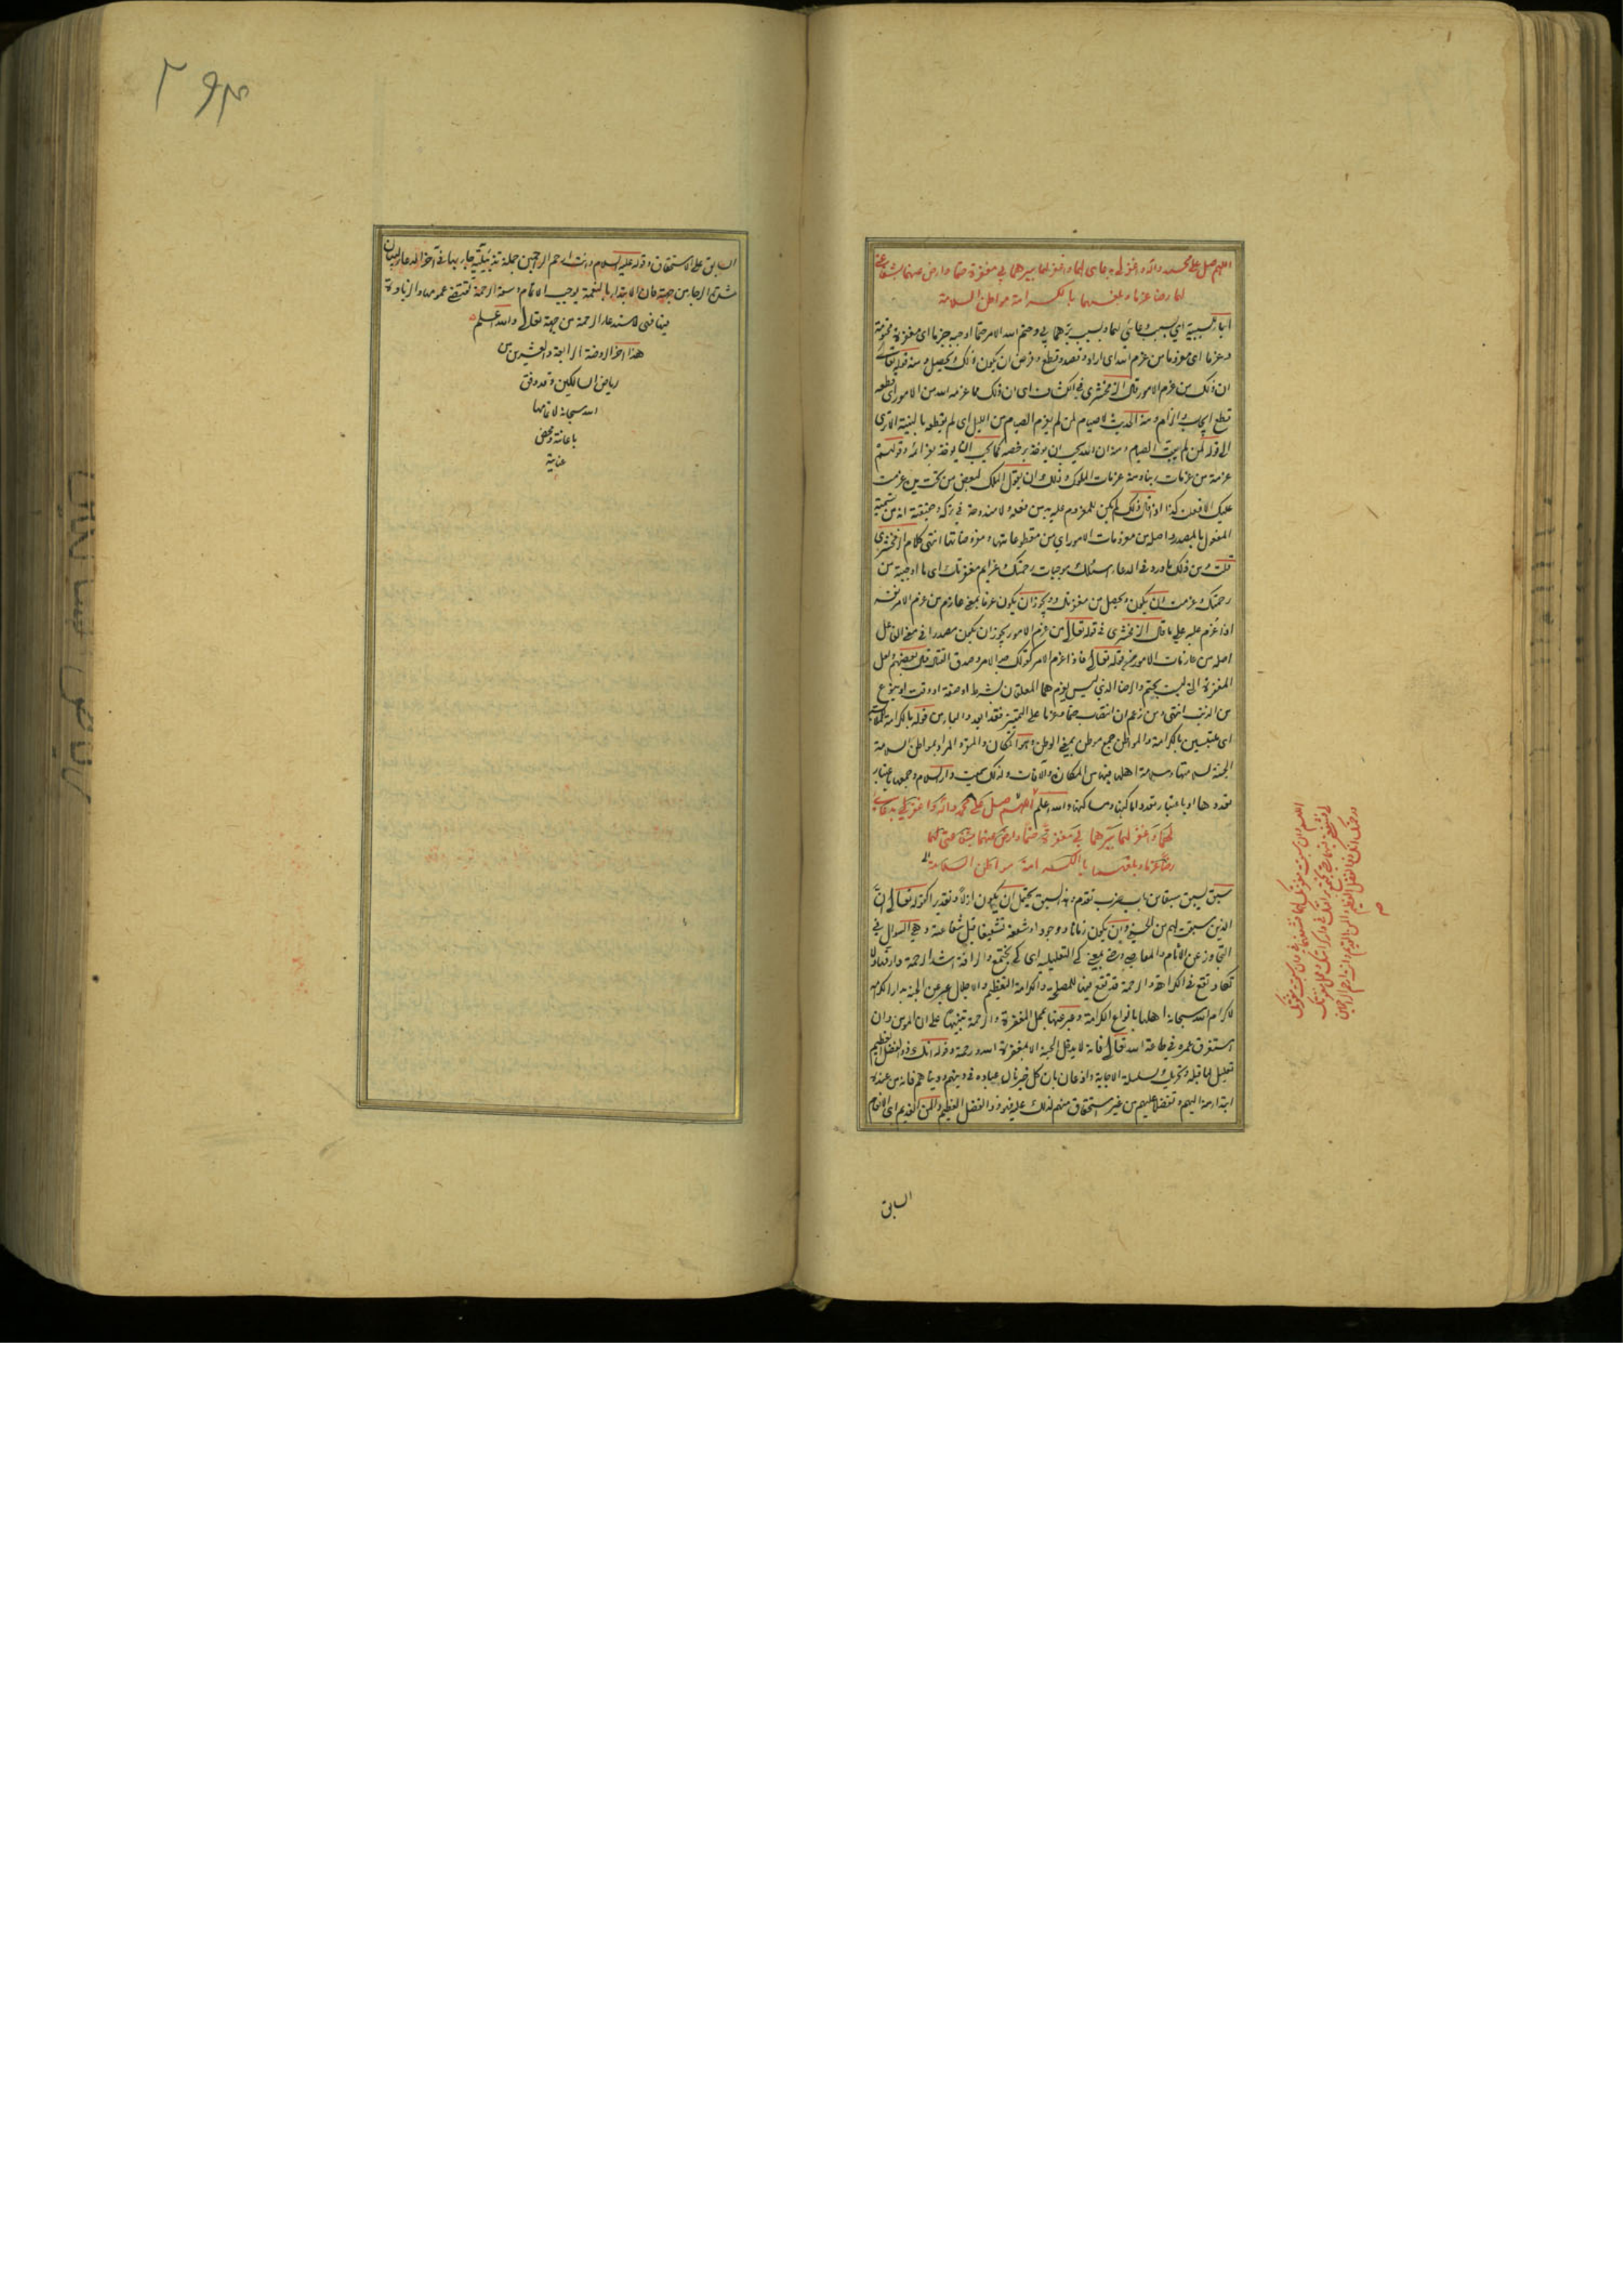 اللهم صل على محمد وآله واغفر لي بدعائي لهما واغفر لهما ببرهما بي مغفرة حتما وارض عنهما بشفاعتي
لهما رضا عزما وبلغهما بالكرامة مواطن السلامة
الباء للسببية اي بسبب دعائي لهما وبسبب برهما بي وحتم الله الامر حتما اوجبه جزما اي مغفرة محتومة
وعزما اي معزوما من عزم الله اي اراد وقصد وقطع وفرض ان يكون ذلك ويحصل ومنه قوله تعالى
ان ذلك من عزم الامور قال الزمخشري في الكشاف اي ان ذلك مما عزمه الله من الامور اي قطعه
قطع ايجاب والزام ومنه الحديث لا صيام لمن لم يعزم الصيام من الليل اي لم يقطعه بالنية الا ترى
الى قوله لمن لم يبيت الصيام ومنه ان الله يحب ان يؤخذ برخصه كما يحب ان يؤخذ بعزائمه وقولهم
عزمة من عزمات ربنا ومنه عزمات الملوك وذلك ان يقول الملك لبعض من تحت يده عزمت
عليك الا فعلت كذا اذا قال ذلك لم يكن للمعزوم عليه بد من فعله ولا مندوحة في تركه وحقيقته انه من تسمية
المفعول بالمصدر واصله من معزومات الامور اي من مقطوعاتها ومفروضاتها انتهى كلام الزمخشري
قلت ومن ذلك ما ورد في الدعاء اسئلك موجبات رحمتك وعزايم مغفرتك اي ما اوجبته من
رحمتك وعزمت ان يكون ويحصل من مغفرتك ويجوز ان يكون عزما بمعنى عازم من عزم الامر نفسه
اذا عزم عليه على ما قال الزمخشري في قوله تعالى من عزم الامور يجوز ان يكون مصدرا في معنى الفاعل
اصله من عازمات الامور من قوله تعالى فاذا عزم الامر كقولك جد الامر وصدق القتال قال بعضهم ولعل
المغفرة التي ليست بحتم والرضا الذي ليس بعزم هما المعلقان بشرط او صفة او وقت او بنوع
من الذنب انتهى ومن زعم ان انتصاب حتما وعزما على التمييز فقد ابعد والباء من قوله بالكرامة للملابسة
اي ملتبسين بالكرامة والمواطن جمع موطن بمعنى الوطن وهو المكان والمقر والمراد بمواطن السلامة
الجنة لسلامتها وسلامة اهلها فيها من المكاره والآفات ولذلك سميت دار السلام وجمعها باعتبار
تعددها او باعتبار تعدد اماكنها ومساكنها والله اعلم اللهم صل على محمد وآله واغفر لي بدعائي
لهما واغفر لهما ببرهما بي مغفرة حتما وارض عنهما بشفاعتي لهما
رضا عزما وبلغهما بالكرامة مواطن السلامة
سبق يسبق سبقا من باب ضرب تقدم وهذا السبق يحتمل ان يكون ازلا وتقديرا كقوله تعالى ان
الذين سبقت لهم منا الحسنى وان يكون زمانا ووجودا وشفعه تشفيعا قبل شفاعته وهي السؤال في
التجاوز عن الآثام والمعاصي وحتى بمعنى كي التعليلية اي كي نجتمع والرأفة اشد الرحمة وارقها ولا
تكاد تقع في الكراهة والرحمة قد تقع فيها للمصلحة والكرامة التعظيم والاجلال عبر عن الجنة بدار الكرامة
لاكرام الله سبحانه اهلها بانواع الكرامة وعبر عنها بمحل المغفرة والرحمة تنبيها على ان المؤمن وان
استغرق عمره في طاعة الله تعالى فانه لا يدخل الجنة الا بمغفرة الله ورحمته وقوله انك ذو الفضل العظيم
تعليل لما قبله وتحريك لسلسلة الاجابة واذعان بان كل خير نال عباده في دينهم ودنياهم فانه من عنده
ابتداء منه اليهم وتفضلا عليهم من غير استحقاق منهم لذلك عليه فهو ذو الفضل العظيم والمن القديم اي الانعام
السابق
اللهم وان سبقت مغفرتك لهما فشفعهما في وان سبقت مغفرتك
لي فشفعني فيهما حتى نجتمع برأفتك في دار كرامتك ومحل مغفرتك
ورحمتك انك ذو الفضل العظيم والمن القديم وانت ارحم الراحمين
السابق على الاستحقاق وقوله عليه السلام وانت ارحم الراحمين جملة تذييلية جاء بها في آخر الدعاء لبيان
شدة الرجاء من جهته فان الابتداء بالنعمة يوجب الاتمام وسعة الرحمة تقتضي عمومها والزيادة
فيها فهي لاستدعاء الرحمة من جهته تعالى والله اعلم
هذا آخر الروضة الرابعة والعشرين من
رياض السالكين وقد وفق
الله سبحانه لاتمامها
باعانته ومحض
عنايته